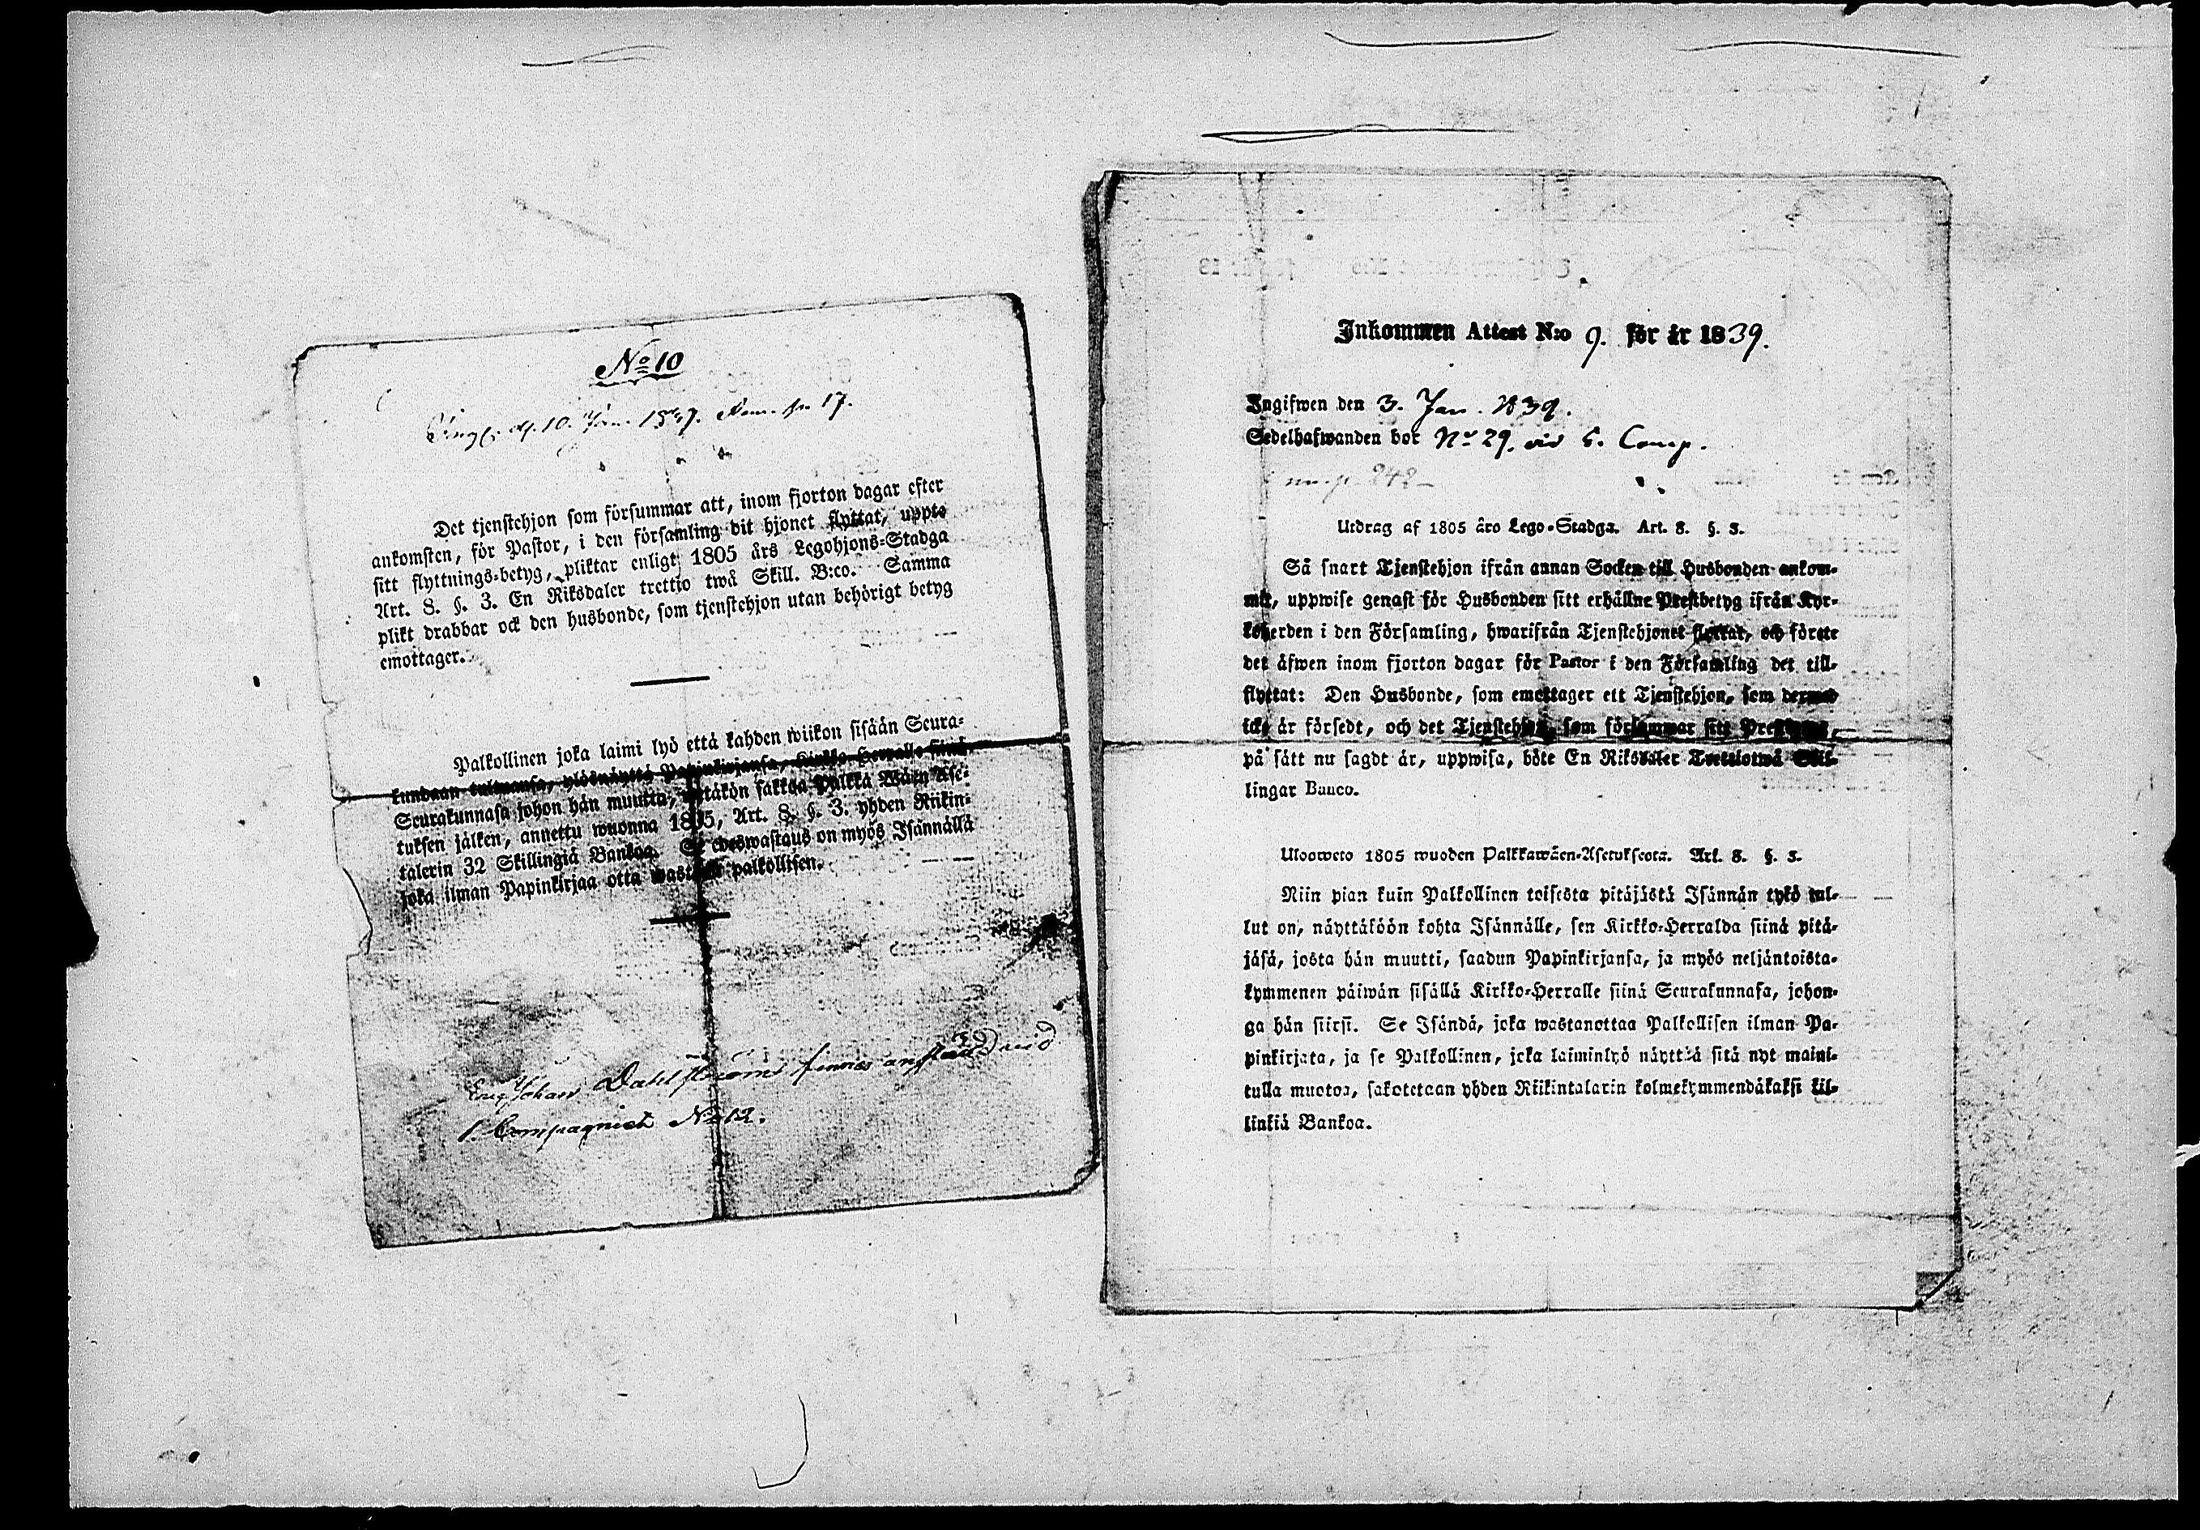 No 10
d. 10. Jan. 17.
Det tjenstehjon som försummar att, inom fjorton dagar efter
ankomsten, för Pastor, i den församling dit hjonet flyttat, uppte
sitt flyttnings-betyg, pliktar enligt 1805 års Legohjons-Stadga
Art. 8. §. 3. En Riksdaler trettio twå Skill. B:co. Samma
plikt drabbar ock den husbonde, som tjenstehjon utan behörigt betyg
emottager.
Palkollinen joka laimi lyö että kahden wiikon sisään Seura-
kundaan tulmansa, ylösnäyttä Papinkirjansa, Kirkko-Herralle siinä
Seurakunnasa johon hän muutta, wetäkön sakkoa Palkka Wäen Ase-
tuksen jälken, annettu wuonna 1805, Art. 8. §. 3. yhden Riikin-
talerin 32 Skillingiä Bankoa. Se edeswastaus on myös Isännällä
joka ilman Papinkirjaa otta wastaan palkollisen.
Johan Dahlström finnes wid
1. Compagniet No 12.
Inkommen Attest N:o 9. för år 1839.
Ingifwen den 3. Jan. 1839.
Sedelhafwanden bor No 29. wid 5. Comp.
p. 242
Utdrag af 1805 års Lego-Stadga. Art. 8. §. 3.
Så snart Tjenstehjon ifrån annan Socken till Husbonden ankom-
mit, uppwise genast för Husbonden sitt erhållne Prestbetyg ifrån Kyr-
koherden i den Församling, hwarifrån Tjenstehjonet flyttat, och förete
det äfwen inom fjorton dagar för Pastor i den Församling det till-
flyttat: Den Husbonde, som emottager ett Tjenstehjon, som dermed
icke är försedt, och det Tjenstehjon, som försummar sitt Prestbetyg,
på sätt nu sagdt är, uppwisa, böte En Riksdaler Trettiotwå Skil-
lingar Banco.
Ulosweto 1805 wuoden Palkkawäen-Asetuksesta. Art. 8. §. 3.
Niin pian kuin Palkollinen toisesta pitäjästä Isännän tykö tul-
lut on, näyttäköön kohta Isännälle, sen Kirkko-Herralda siinä pitä-
jäsä, josta hän muutti, saadun Papinkirjansa, ja myös neljäntoista-
kymmenen päiwän sisällä Kirkko-Herralle siinä Seurakunnasa, johon-
ga hän siirsi. Se Isändä, joka wastanottaa Palkollisen ilman Pa-
pinkirjata, ja se Palkollinen, joka laiminlyö näyttää sitä nyt maini-
tulla muotoa, sakotetaan yhden Riikintalarin kolmekymmendäkaksi kil-
linkiä Bankoa.